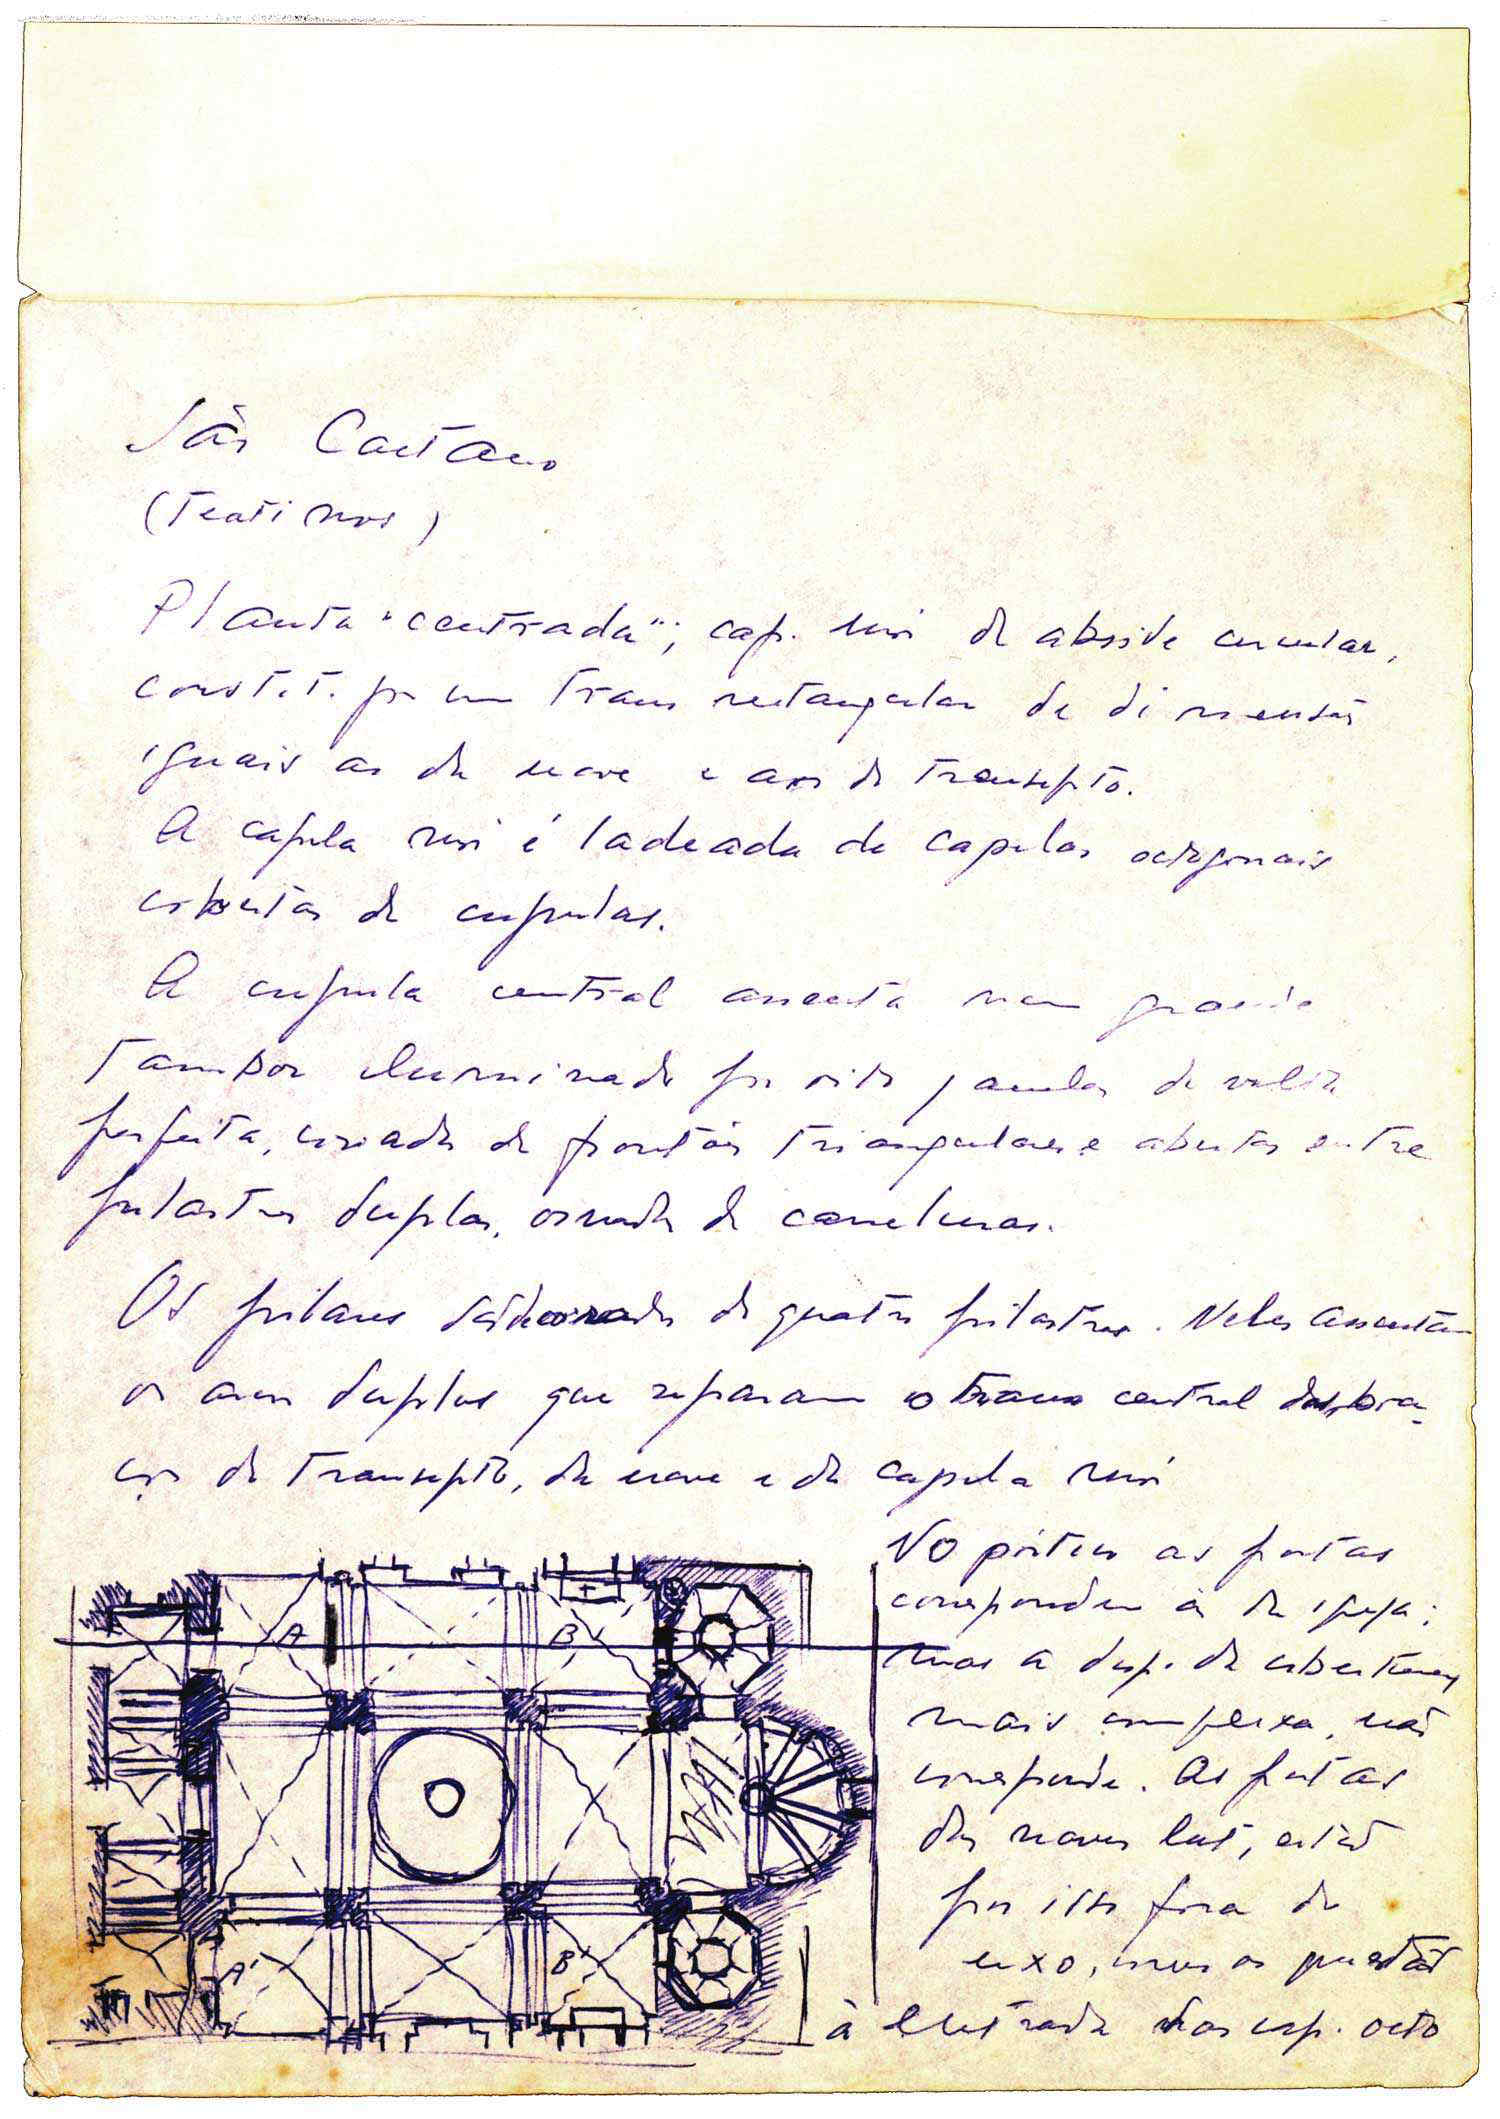 São Caetano
(Teatinos)
Planta "centrada"; cap. mor de abside circular,
constit. por um tramo rectangular de dimensões
iguais as da nave e aos do transepto.
A capela mor é ladeada de capelas octogonais
cobertas de cupulas.
A cupula central assenta num grande
tambor iluminado por oito janelas de volta
perfeita, coroadas de frontões triangulares e abertas entre
pilastras duplas, ornadas de caneluras.
Os pilares são de quatro pilastras. Neles assentam
os arcos duplos que separam o tramo central dos bra-
ços do transepto, da nave e da capela mor
No pórtico as portas
correspondem às da igreja;
mas a disp. da cobertura,
mais complexa, não
corresponde. As portas
das naves lat, estão
por isso fora do
eixo, mas os que estão
à entrada das cap. octo
A
B
A'
B'